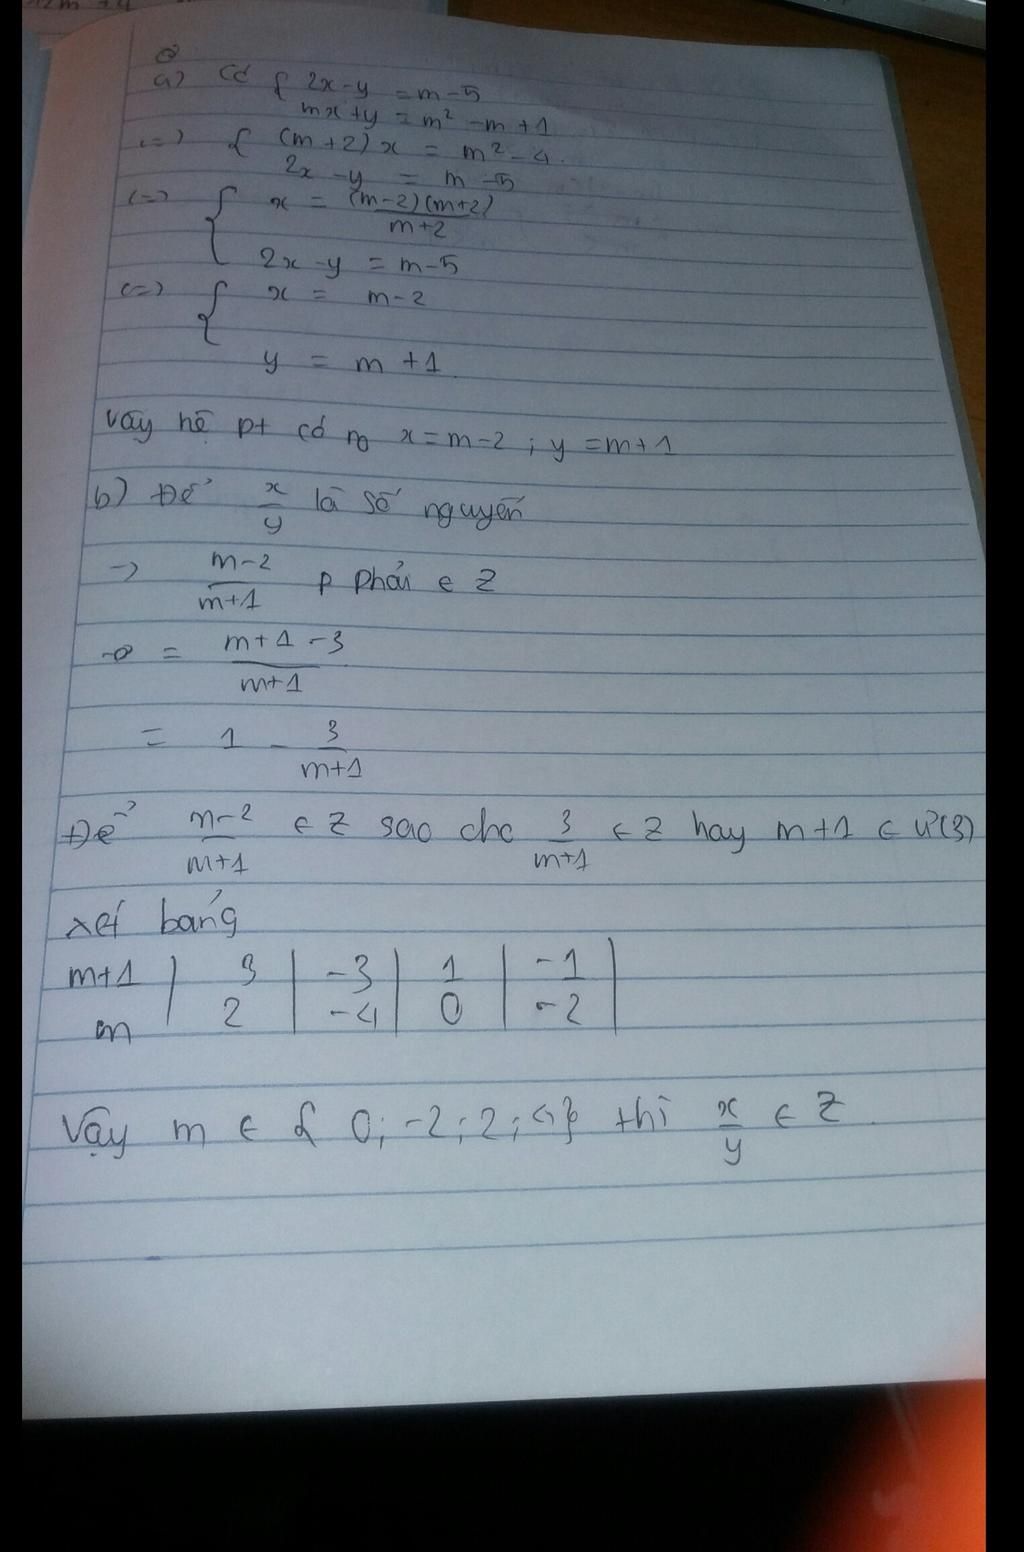 a) Có { 2x - y = m - 5
mx + y = m² - m + 1
(=) { (m+2)x = m² - 4.
2x - y = m - 5
(=) { x = (m-2)(m+2) / m+2
2x - y = m - 5
(=) { x = m - 2
y = m + 1
Vậy hệ pt có no x = m - 2 ; y = m + 1
b) Để x/y là số nguyên
-> m-2/m+1 p phải ∈ Z
= m+1-3/m+1
= 1 - 3/m+1
Để m-2/m+1 ∈ Z sao cho 3/m+1 ∈ Z hay m+1 ∈ Ư(3)
xét bảng
m+1 | 3 | -3 | 1 | -1 |
m | 2 | -4 | 0 | -2 |
Vậy m ∈ { 0; -2; 2; 4} thì x/y ∈ Z